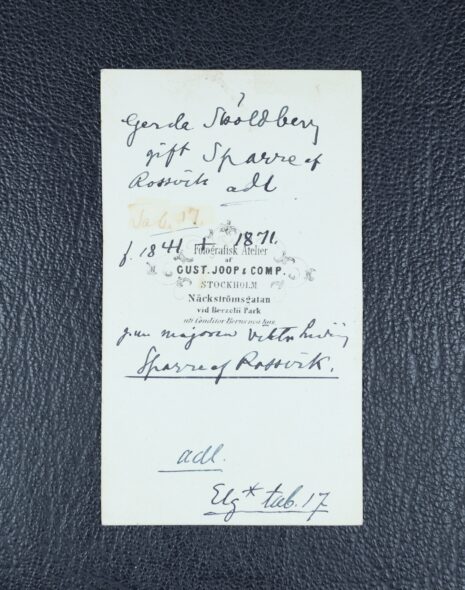 Gerda Sköldberg
gift Sparre af
Rossvik adl
Tab. 17.
f. 1841 + 1871.
Fotografisk Atelier
af
GUST. JOOP & COMP.
STOCKHOLM
Näckströmsgatan
vid Berzelii Park
uti Conditor Berns nya hus
majoren Viktor
Sparre af Rossvik.
adl.
Elg* tab. 17